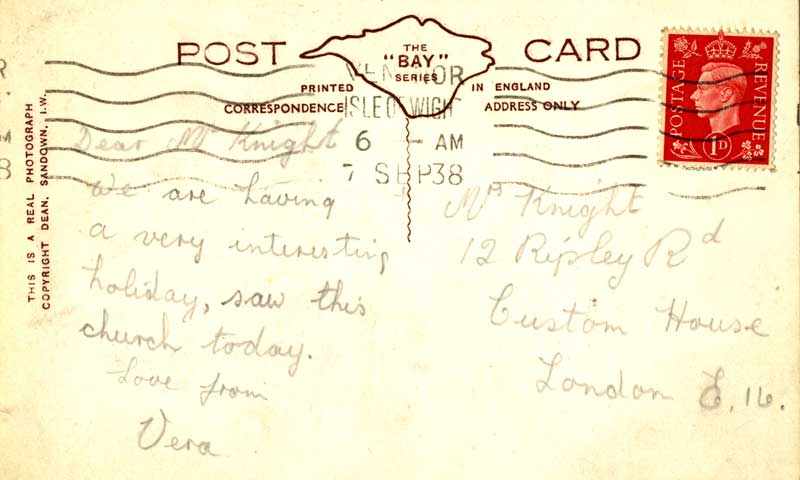 POST CARD
THE
"BAY"
SERIES
PRINTED IN ENGLAND
CORRESPONDENCE ADDRESS ONLY
VENTNOR
ISLE OF WIGHT
6 - AM
7 SEP 38
POSTAGE REVENUE
1D
THIS IS A REAL PHOTOGRAPH
COPYRIGHT DEAN, SANDOWN, I.W.
Dear Mrs Knight
We are having
a very interesting
holiday, saw this
church today.
Love from
Vera
Mrs Knight
12 Ripley Rd
Custom House
London E.16.